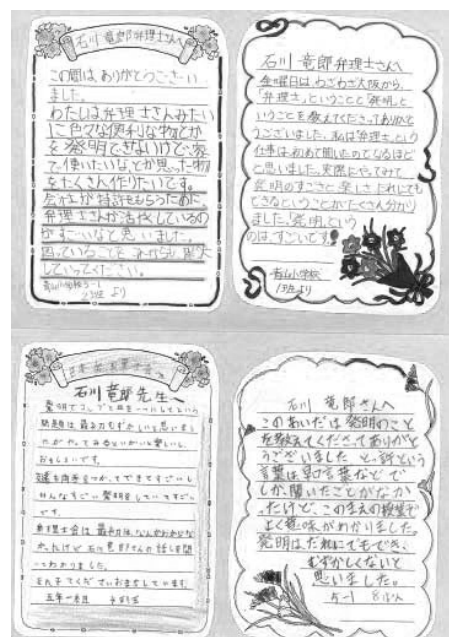 石川竜郎弁理士さんへ
この間は、ありがとうござい
ました。
わたしは弁理士さんみたい
に色々な便利な物とか
を発明できないけど、家
で使いたいな、とか思った物
をたくさん作りたいです。
会社が特許をもらうために
弁理士さんが活やくしているの
がすごいなと思いました。
困っていることを
していってください。
青山小学校5-1
2班より
石川竜郎弁理士さんへ
金曜日は、わざわざ大阪から、
「弁理士」ということと「発明」と
いうことを教えてくださってありがと
うございました。私は「弁理士」という
仕事は、初めて聞いたのでなるほど
と思いました。実際にやってみて
発明のすごさと楽しさ、だれにでも
できるということがたくさん分かり
ました！発明という
のは、すごいです！
青山小学校
1班より
石川竜郎先生へ
発明でコップと
問題は最初むずかしいと思いまし
たがやってみるといがいと楽しいし、
おもしろいです。
みんなすごい発明をしていてすごい
です。
弁理士会は最初は、なんかわからな
かったけど石川竜郎さんの話しを聞
いてわかりました。
五年一組
石川竜郎さんへ
このあいだは発明のこと
を教えてくださってありがと
うございました。とっ許という
言葉は早口言葉などで
しか、聞いたことがなか
ったけど、このまえの授業で
よく意味がわかりました。
発明は、だれにでもでき、
むずかしくないと
思いました。
5-1 8はん